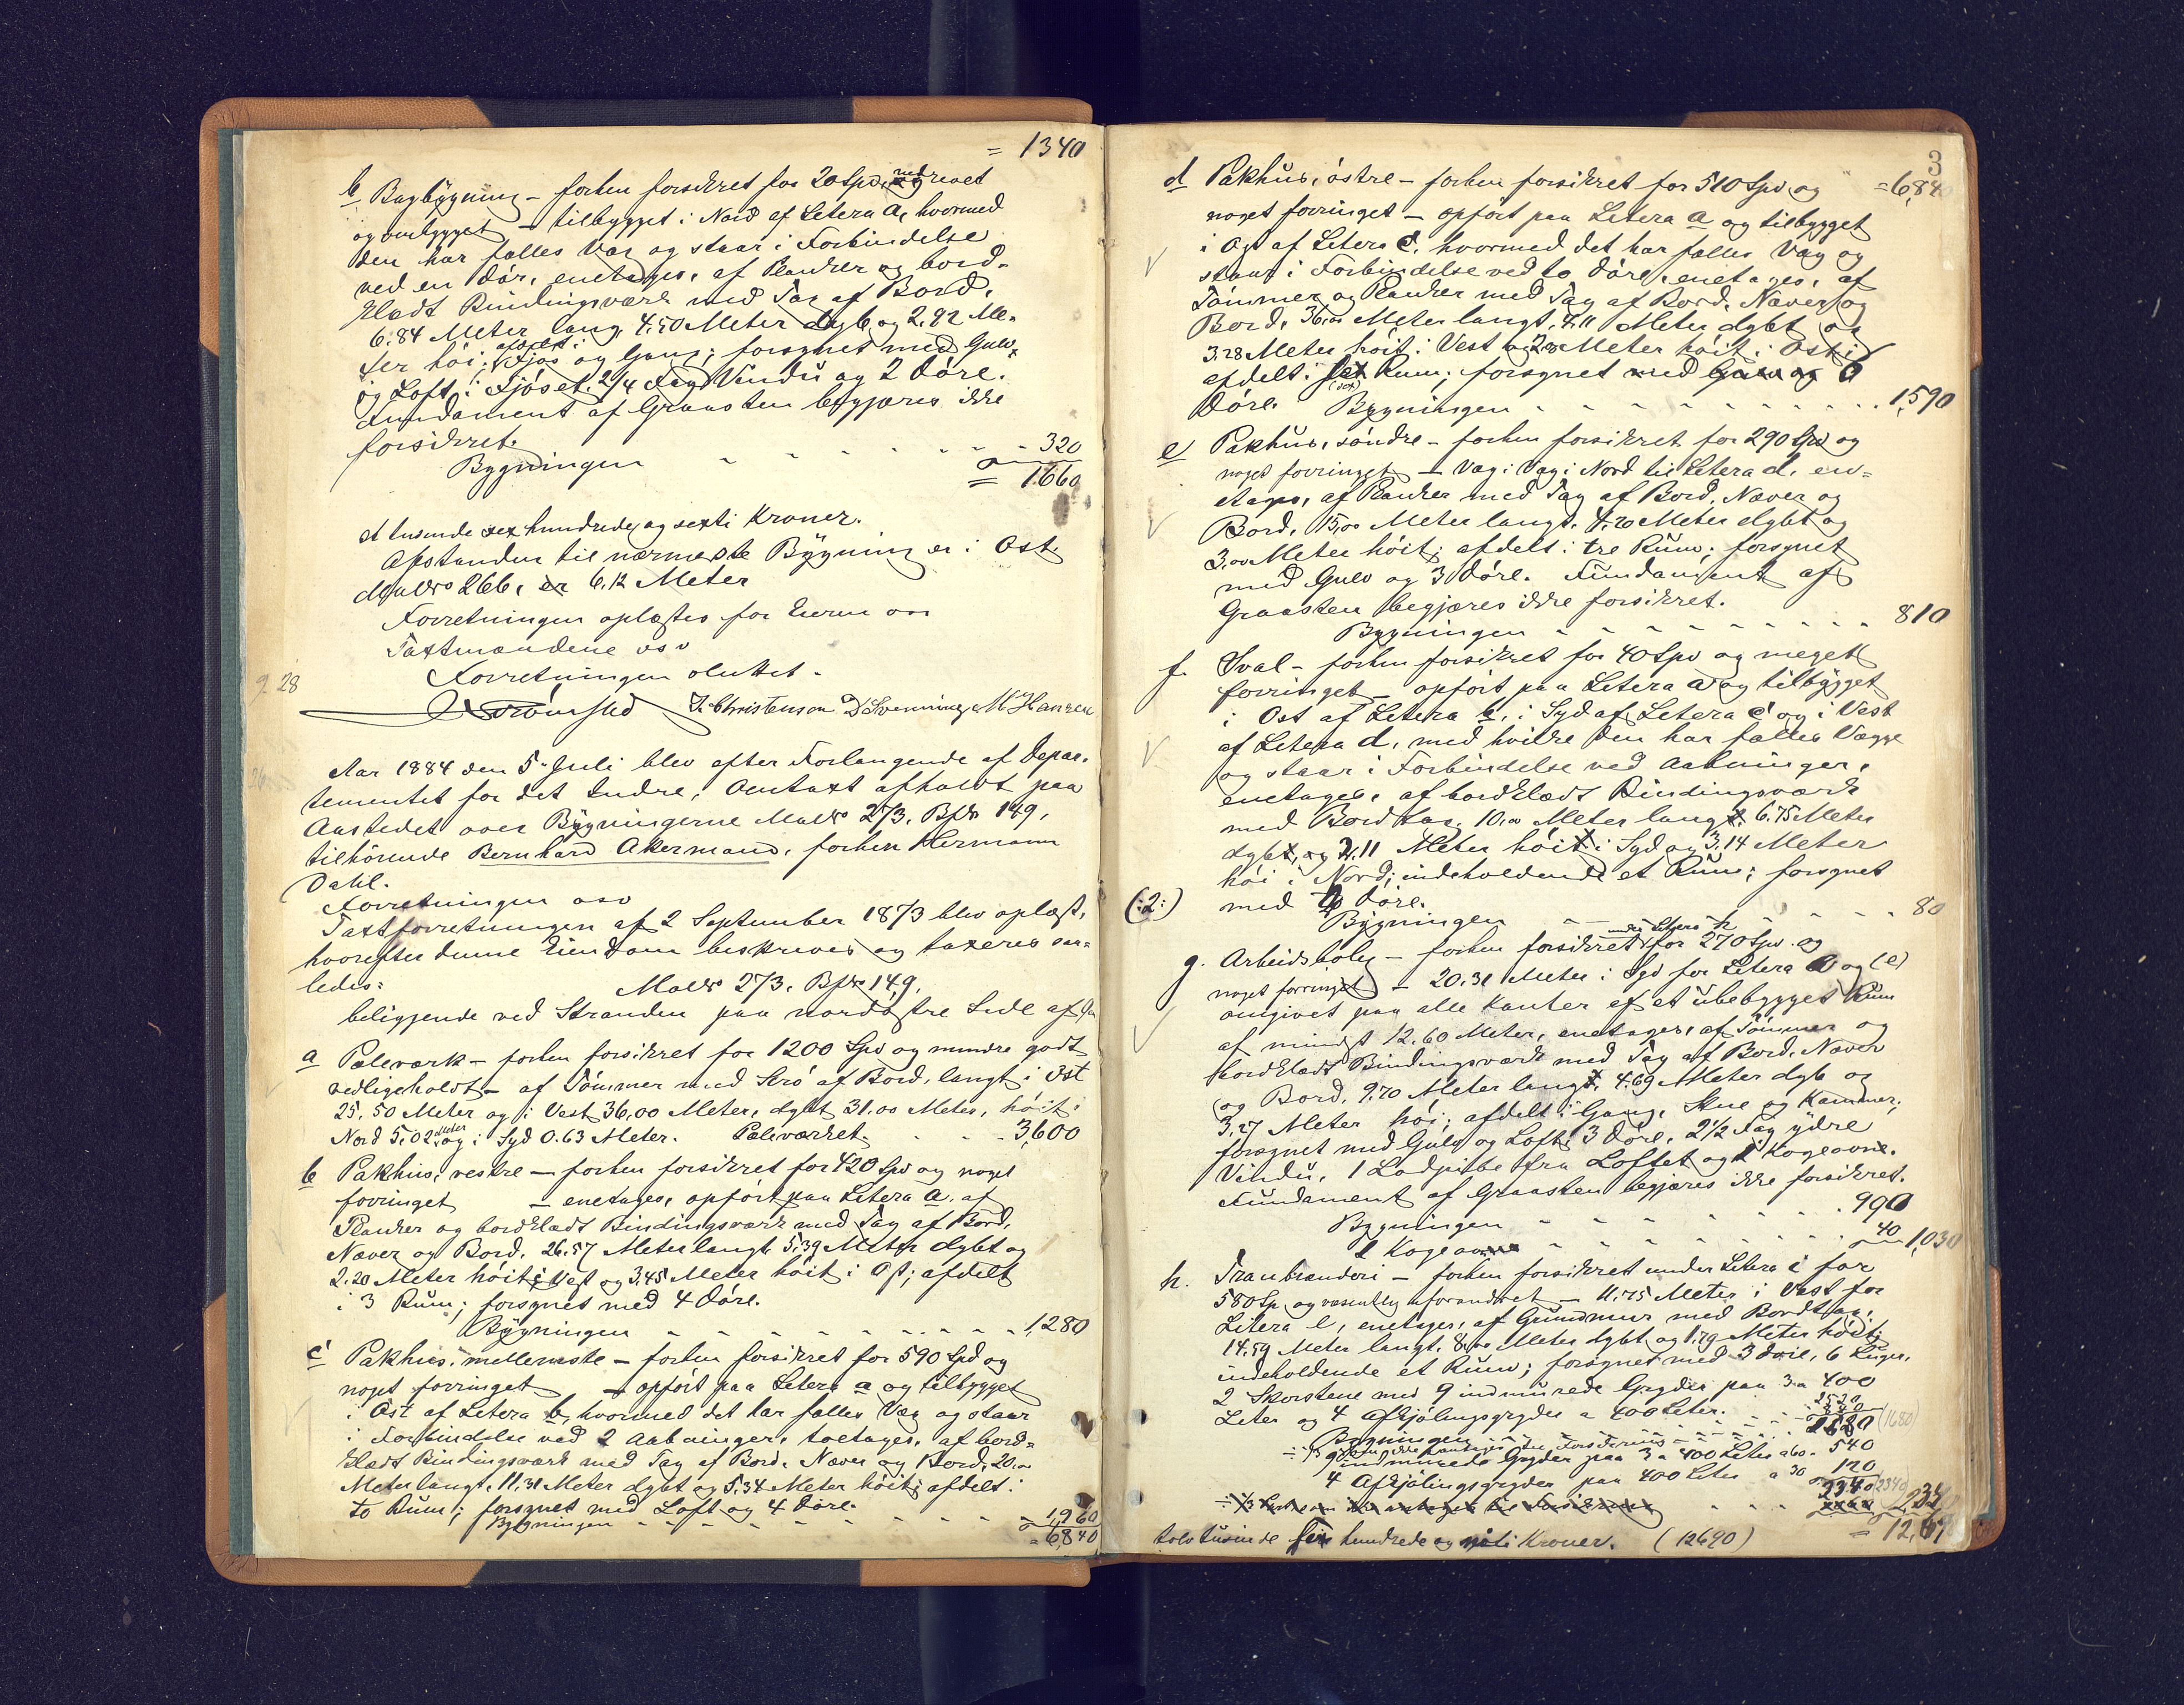 = 1340
b Bagbÿgning – forhen forsikret for 20 Spd, nedrevet
og ombygget – tilbygget i Nord af Litera a, hvormed
den har fælles Væg og staar i Forbindelse
ved en Dör, enetages, af Planker og bord-
klædt Bindingsværk med Tag af Bord,
6.84 Meter lang, 4.50 Meter dyb og 2.82 Me-
ter höi; afdelt i Fjös og Gang; forsynet med Gulv
og Loft i Fjöset, 2/4 Fag Vindu og 2 Döre.
Fundament af Graasten begjæres ikke
forsikret.
Bygningen - - - - - - 320
= 1660
et tusende sex hundrede og sexti Kroner.
Afstanden til nærmeste Bÿgning er i Öst
MatNo 266, er 6.12 Meter
Forretningen oplæstes for Eieren og
Taxtmændene osv
Forretningen sluttet.
g. 28
J. Christenson D Svenninge M Hansen
Aar 1884 den 5. Juli blev efter Forlangende af Depar-
tementet for det Indre, Omtaxt afholdt paa
Aastedet over Bÿgningerne MatNo 273, BpNo 149,
tilhörende Bernhard Akermand, forhen Hermann
Dahl.
Forretningen osv
Taxtforretningen af 2 September 1873 blev oplæst,
hvorefter denne Eiendom beskrives og taxeres saa-
ledes:
MatNo 273. BpNo 149.
beliggende ved Stranden paa nordöstre Side af
a Paleværk – forhen forsikret for 1200 Spd og mindre godt
vedligeholdt – af Tömmer med Strö af Bord, langt i Öst
25.50 Meter og i Vest 36.00 Meter, dybt 31.00 Meter, höit i
Nord 5.02 Meter og i Syd 0.63 Meter. Paleværket - - - 3,600
b Pakhus, vestre – forhen forsikret for 420 Spd og noget
forringet – enetages, opfört paa Litera a, af
Planker og bordklædt Bindingsværk med Tag af Bord,
Næver og Bord, 26.57 Meter langt, 5.39 Meter dybt og
2.20 Meter höit i Vest og 3.45 Meter höit i Öst; afdelt
i 3 Rum; forsynet med 4 Döre.
Bÿgningen - - - - - - - - 1,280
c Pakhus, mellemste – forhen forsikret for 590 Spd og
noget forringet – opfört paa Litera a og tilbygget
i Öst af Litera b, hvormed det har fælles Væg og staar
i Forbindelse ved 2 Aabninger, toetages, af bord-
klædt Bindingsværk med Tag af Bord, Næver og Bord, 20.
Meter langt, 11.31 Meter dybt og 5.34 Meter höit; afdelt i
to Rum; forsynet med Loft og 4 Döre.
Bygningen - - - - - - - - 1,960
= 6,840
3
d Pakhus, östre – forhen forsikret for 510 Spd og = 6,840
noget forringet – opfört paa Litera a og tilbygget
i Öst af Litera c, hvormed det har fælles Væg og
staar i Forbindelse ved to Döre, enetages, af
Tömmer og Planker med Tag af Bord, Næver og
Bord, 36. Meter langt, 4.11 Meter dybt og
3.28 Meter höit i Vest og Meter höit i Öst;
afdelt i Rum; forsynet med Gulv og
Döre. Bygningen - - - - - - - - 1,590
e Pakhus, söndre – forhen forsikret for 290 Spd og
noget forringet – Væg i Væg i Nord til Litera d, en-
etages, af Planker med Tag af Bord, Næver og
Bord, 15,00 Meter langt, 4.20 Meter dybt og
3.00 Meter höit; afdelt i tre Rum; forsynet
med Gulv og 3 Döre. Fundament af
Graasten begjæres ikke forsikret.
Bygningen - - - - - - - - 810
f. Sval – forhen forsikret for 40 Spd og meget
forringet – opfört paa Litera a og tilbÿgget
i Öst af Litera b, i Syd af Litera c og i Vest
af Litera d, med hvilke den har fælles Vægge
og staar i Forbindelse ved Aabninger,
enetages, af bordklædt Bindingsværk
med Bordtag, 10. Meter lang, 6.75 Meter
dyb, og 2.11 Meter höi i Syd og 3.14 Meter
höi i Nord; indeholdende et Rum; forsynet
(:2:) med Döre.
Bÿgningen - - - - - - 80
g. Arbeidsbolig – forhen forsikret under Litera h for 270 Spd og
noget forringet – 20.31 Meter i Syd for Litera a og (e)
omgivet paa alle Kanter af et ubebygget Rum
af mindst 12.60 Meter, enetages, af Tömmer og
bordklædt Bindingsværk med Tag af Bord, Næver
og Bord, 9.70 Meter lang, 4.69 Meter dyb og
3.27 Meter höi; afdelt i Gang, Stue og Kammer;
forsynet med Gulv og Loft, 3 Döre, 2 1/2 Fag ÿdre
Vindu, 1 Ladpibe fra Loftet og 1 Kogeovn.
Fundament af Graasten begjæres ikke forsikret.
Bygningen - - - - - - - 990
1 Kogeovn - - - - - - - 40 1,030
h. Tranbrænderi – forhen forsikret under Litera i for
580 Sp og væsentlig uforandret – 11.75 Meter i Vest for
Litera e, enetages, af Grundmur med Bordtag,
14.59 Meter langt, 8. Meter dybt og 1.79 Meter höit;
indeholdende et Rum; forsynet med 3 Döre, 6 Luger,
2 Skorstene med 9 indmurede Gryder paa 3 a 400
Liter og 4 Afkjölingsgryder a 400 Liter.
Bygningen - - - - - 1680 (1680)
9 indmurede Gryder paa 3 a 400 Liter a 60. 540
4 Afkjölingsgryder paa 400 Liter a 30 120
2340 (2340) 2,340
tolv tusinde hundrede og Kroner. (12690) = 12,69